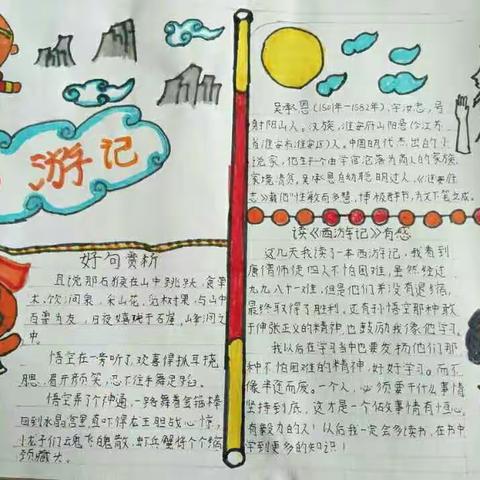 游记
好句赏析
且说那石猴在山中跳跃，食草
木，饮涧泉，采山花，觅树果；与
百兽为友，日夜嬉戏于石崖、山峰洞之
中。
悟空在一旁听了，欢喜得抓耳挠
腮，眉开颜笑，忍不住手舞足蹈。
悟空弄了个神通，一路舞着金箍棒
回到水晶宫里，直吓得老王胆战心惊，
小龙子们魂飞魄散，虾兵蟹将个个缩
颈藏头。
吴承恩（1501年-1582年），字汝忠，号
射阳山人。汉族，淮安府山阳县（今江苏
省淮安市淮安区）人。中国明代杰出的小
说家，他生于一个由学官沦落为商人的家族，
家境清贫。吴承恩自幼聪明过人，《淮安府
志》载他“性敏而多慧，博极群书，为文下笔立成。
读《西游记》有感
这几天我读了一本西游记，我看到
唐僧师徒四人不怕困难，虽然经过
九九八十一难，但是他们并没有退缩，
最终取得了胜利，还有孙悟空那种敢
于伸张正义的精神，也鼓励我像他学习。
我以后在学习当中也要发扬他们那
种不怕困难的精神，好好学习。而不
像半途而废。一个人，必须要干什么事情
坚持到底，这才是一个做事情有恒心，
有毅力的人！以后我一定会多读书，在书中
学到更多的知识！